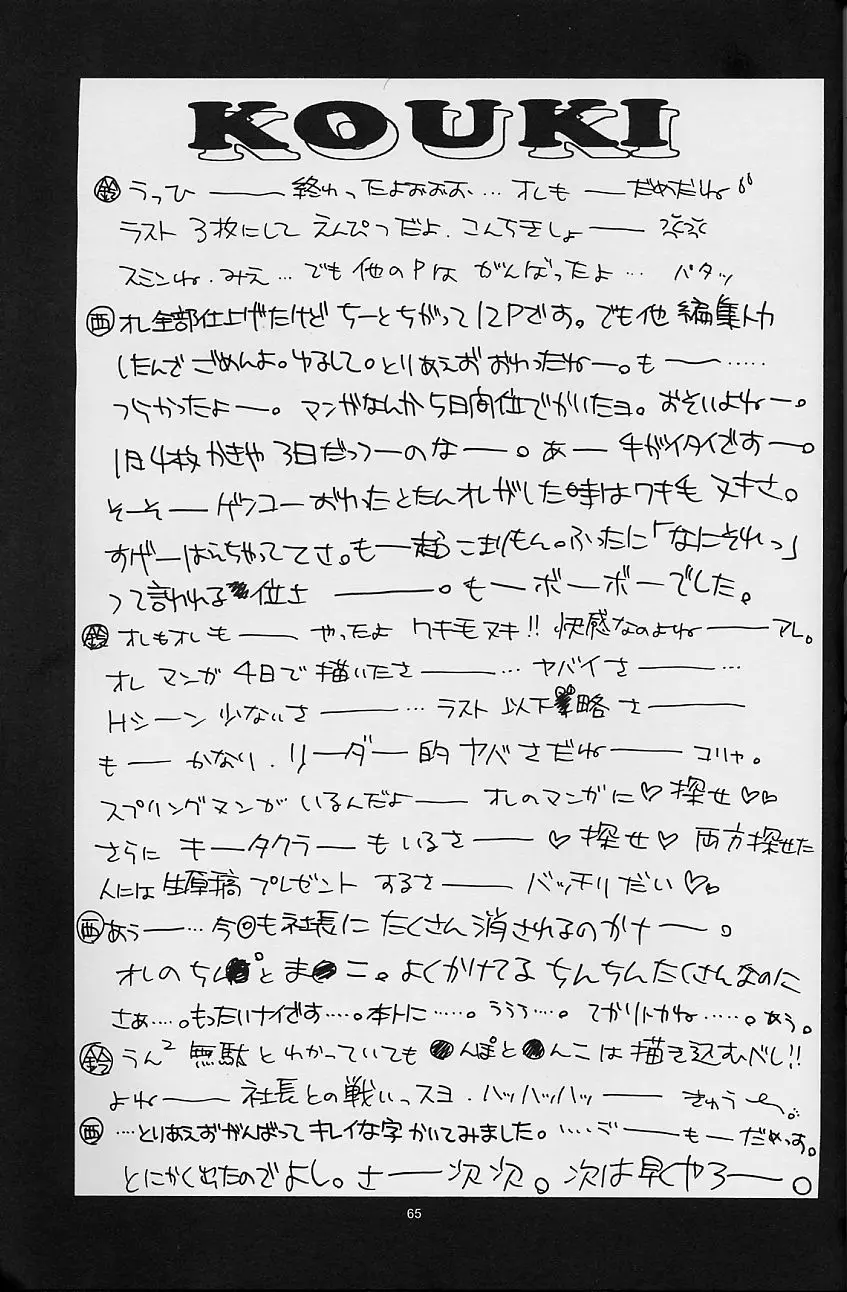 KOUKI
㊙鈴 うっひ――終わったよおおお…オレも―だめだね
ラスト 3枚にして えんぴつだよ. こんちきしょ――
スミンね. みえ… でも他のPは がんばったよ… パタッ
西 オレ全部仕上げたけど ちーとちがって12Pです。でも他 編集トカ
したんで ごめんよ。ゆるして。とりあえずおわったねー。も――……
つらかったよー。マンガなんか5日間位でかいたヨ。おそいよねー。
1日4枚かきや3日だっつーのなー。あー 手がイタイですー。
そーそーゲンコーおわったとたんオレがした時はワキ毛ヌキさ。
すげーはえちゃっててさ。もー超こまりもん。ふたに「なにそれっ」
って言われる位さ――。もーボーボーでした。
鈴 オレもオレも―― やったよ ワキモヌキ!! 快感なのよね――アレ。
オレ マンガ 4日で描いたさ――… ヤバイさ――…
Hシーン 少ないさ――… ラスト 以下略さ――
も―― かなり. リーダー的ヤバさだね―― コリャ。
スプリングマンが いるんだよ―― オレのマンガに♡探せ♡♡
さらに キータクラーもいるさ――♡探せ♡ 両方探せた
人には 生原稿 プレゼント するさ―― バッチリだい♡♡
西 あぅ――…今◎も社長に たくさん消されるのかナー。
オレの ち●●と ま●こ。よくかけてる ちんちんたくさんなのに
さぁ…。もったいナイです…。本トに……。ううう…。てかりトカね……。あぅ。
鈴 うん² 無駄とわかっていても ●んぽと●んこは 描き込むべし!!
よね―― 社長との戦いっスヨ. ハッハッハッ―― きゅう～
西 …とりあえずがんばって キレイな字 かいてみました。 もーだめっす。
とにかく出たのでよし。さ――次次。次は早くやろ――。
65